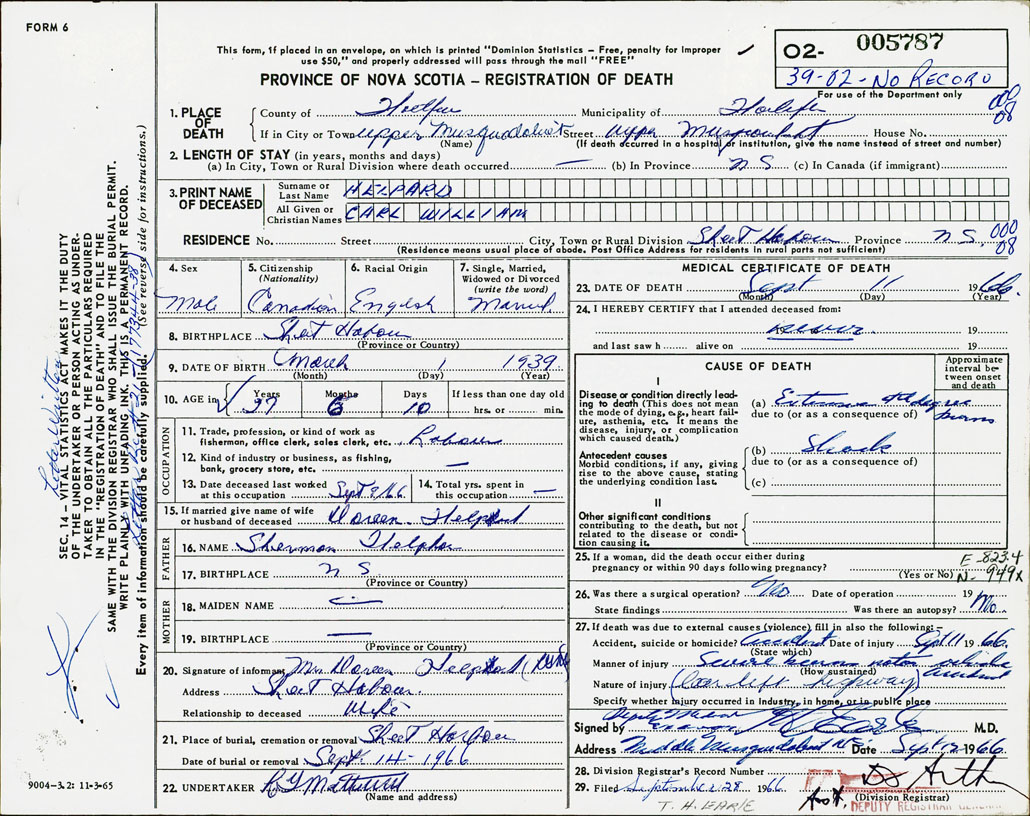 FORM 6
This form, if placed in an envelope, on which is printed "Dominion Statistics – Free, penalty for improper
use $50," and properly addressed will pass through the mail "FREE"
PROVINCE OF NOVA SCOTIA – REGISTRATION OF DEATH
02- 005787
39-02-No Record
For use of the Department only
000
08
1. PLACE OF DEATH
County of Halifax Municipality of Halifax
If in City or Town Upper Musquodoboit Street Upper Musquodoboit House No.
(Name) (If death occurred in a hospital or institution, give the name instead of street and number)
2. LENGTH OF STAY (in years, months and days)
(a) In City, Town or Rural Division where death occurred — (b) In Province N S (c) In Canada (if immigrant)
3. PRINT NAME OF DECEASED
Surname or Last Name HELPARD
All Given or Christian Names CARL WILLIAM
RESIDENCE No. Street City, Town or Rural Division Sheet Harbour Province N S.
000
08
(Residence means usual place of abode. Post Office Address for residents in rural parts not sufficient)
4. Sex
Male
5. Citizenship
(Nationality)
Canadian
6. Racial Origin
English
7. Single, Married, Widowed or Divorced
(write the word)
Married
8. BIRTHPLACE Sheet Harbour
(Province or Country)
9. DATE OF BIRTH March 1 1939
(Month) (Day) (Year)
10. AGE in Years 27 Months 6 Days 10 If less than one day old
hrs. or min.
OCCUPATION
11. Trade, profession or kind of work as
fisherman, office clerk, sales clerk, etc. Labourer
12. Kind of industry or business, as fishing,
bank, grocery store, etc. —
13. Date deceased last worked
at this occupation Sept 9/66
14. Total yrs. spent in
this occupation —
15. If married give name of wife
or husband of deceased Doreen Helpard
FATHER
16. NAME Sherman Helphard
17. BIRTHPLACE N S
(Province or Country)
MOTHER
18. MAIDEN NAME —
19. BIRTHPLACE —
(Province or Country)
20. Signature of informant Mrs Doreen Helpard
Address Sheet Harbour
Relationship to deceased Wife
21. Place of burial, cremation or removal Sheet Harbour
Date of burial or removal Sept. 14-1966
22. UNDERTAKER
(Name and address)
MEDICAL CERTIFICATE OF DEATH
23. DATE OF DEATH Sept 11 1966
(Month) (Day) (Year)
24. I HEREBY CERTIFY that I attended deceased from:
never 19
and last saw h alive on 19
CAUSE OF DEATH
Approximate interval between onset and death
I
Disease or condition directly leading to death (This does not mean the mode of dying, e.g., heart failure, asthenia, etc. It means the disease, injury, or complication which caused death.)
(a) Extensive degree burns
due to (or as a consequence of)
Antecedent causes
Morbid conditions, if any, giving rise to the above cause, stating the underlying condition last.
(b) Shock
due to (or as a consequence of)
(c)
II
Other significant conditions
contributing to the death, but not related to the disease or condition causing it.
25. If a woman, did the death occur either during
pregnancy or within 90 days following pregnancy?
(Yes or No)
E-823.4
N-949x
26. Was there a surgical operation? No Date of operation 19
State findings Was there an autopsy? No
27. If death was due to external causes (violence) fill in also the following:–
Accident, suicide or homicide? Accident Date of injury Sept 11 1966.
(State which)
Manner of injury Severe burns motor vehicle accident
(How sustained)
Nature of injury (Car left highway)
Specify whether injury occurred in industry, in home, or in public place
Signed by M.D.
Address Middle Musquodoboit NS Date Sept 12 1966.
28. Division Registrar's Record Number
29. Filed September 28 1966
(Division Registrar)
Asst. DEPUTY REGISTRAR GENERAL
T. H. EARLE
9004-3.2: 11-3-65
SEC. 14 – VITAL STATISTICS ACT MAKES IT THE DUTY
OF THE UNDERTAKER OR PERSON ACTING AS UNDER-
TAKER TO OBTAIN ALL THE PARTICULARS REQUIRED
IN THE "REGISTRATION OF DEATH" AND TO FILE THE
SAME WITH THE DIVISION REGISTRAR WHO SHALL ISSUE THE BURIAL PERMIT.
WRITE PLAINLY WITH UNFADING INK. THIS IS A PERMANENT RECORD.
Every item of information should be carefully supplied. (See reverse side for instructions.)
Letter Written